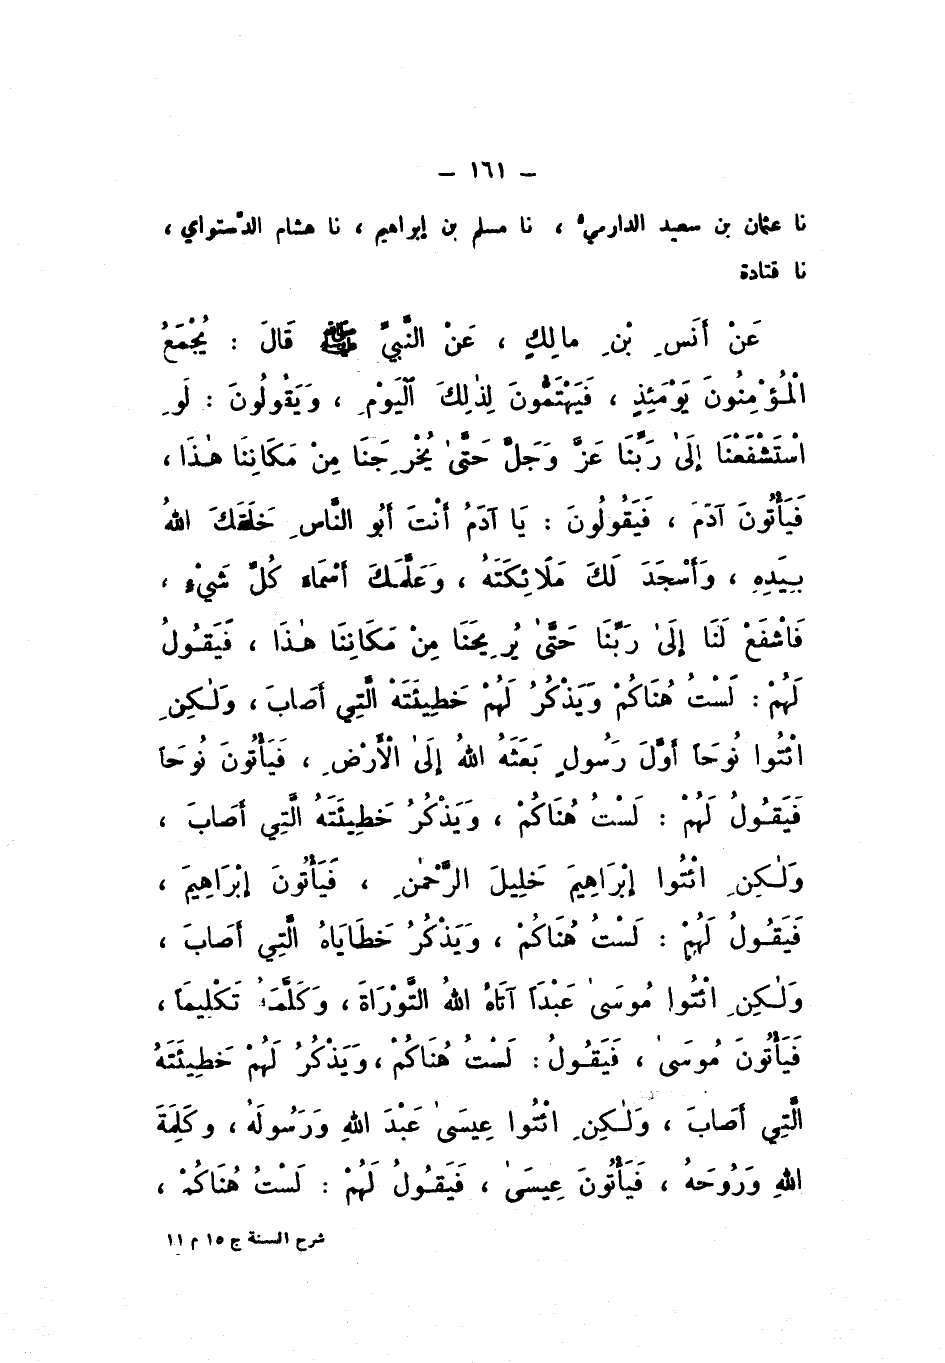 — ١٦١ —
نا عثمان بن سعيد الدارميُّ ، نا مسلم بن إبراهيم ، نا هشام الدَّستواي ،
نا قتادة
عَنْ أَنَسِ بْنِ مالِكٍ ، عَنْ النَّبِيِّ ﷺ قَالَ : يُجْمَعُ
الْمُؤْمِنُونَ يَوْمَئِذٍ ، فَيَهْتَمُّونَ لِذٰلِكَ الْيَوْمِ ، وَيَقُولُونَ : لَوِ
اسْتَشْفَعْنَا إِلَىٰ رَبِّنَا عَزَّ وَجَلَّ حَتَّىٰ يُخْرِجَنَا مِنْ مَكَانِنَا هٰذَا ،
فَيَأْتُونَ آدَمَ ، فَيَقُولُونَ : يَا آدَمُ أَنْتَ أَبُو النَّاسِ خَلَقَكَ اللهُ
بِيَدِهِ ، وَأَسْجَدَ لَكَ مَلَائِكَتَهُ ، وَعَلَّمَكَ أَسْمَاءَ كُلِّ شَيْءٍ ،
فَاشْفَعْ لَنَا إِلَىٰ رَبِّنَا حَتَّىٰ يُرِيحَنَا مِنْ مَكَانِنَا هٰذَا ، فَيَقُولُ
لَهُمْ : لَسْتُ هُنَاكُمْ وَيَذْكُرُ لَهُمْ خَطِيئَتَهُ الَّتِي أَصَابَ ، وَلٰكِنِ
ائْتُوا نُوحَاً أَوَّلَ رَسُولٍ بَعَثَهُ اللهُ إِلَىٰ الْأَرْضِ ، فَيَأْتُونَ نُوحَاً
فَيَقُولُ لَهُمْ : لَسْتُ هُنَاكُمْ ، وَيَذْكُرُ خَطِيئَتَهُ الَّتِي أَصَابَ ،
وَلٰكِنِ ائْتُوا إِبْرَاهِيمَ خَلِيلَ الرَّحْمٰنِ ، فَيَأْتُونَ إِبْرَاهِيمَ ،
فَيَقُولُ لَهُمْ : لَسْتُ هُنَاكُمْ ، وَيَذْكُرُ خَطَايَاهُ الَّتِي أَصَابَ ،
وَلٰكِنِ ائْتُوا مُوسَىٰ عَبْدَاً آتَاهُ اللهُ التَّوْرَاةَ ، وَكَلَّمَهُ تَكْلِيمَاً ،
فَيَأْتُونَ مُوسَىٰ ، فَيَقُولُ : لَسْتُ هُنَاكُمْ ، وَيَذْكُرُ لَهُمْ خَطِيئَتَهُ
الَّتِي أَصَابَ ، وَلٰكِنِ ائْتُوا عِيسَىٰ عَبْدَ اللهِ وَرَسُولَهُ ، وكَلِمَةَ
اللهِ وَرُوحَهُ ، فَيَأْتُونَ عِيسَىٰ ، فَيَقُولُ لَهُمْ : لَسْتُ هُنَاكُمْ ،
شرح السنة ج ١٥ م ١١